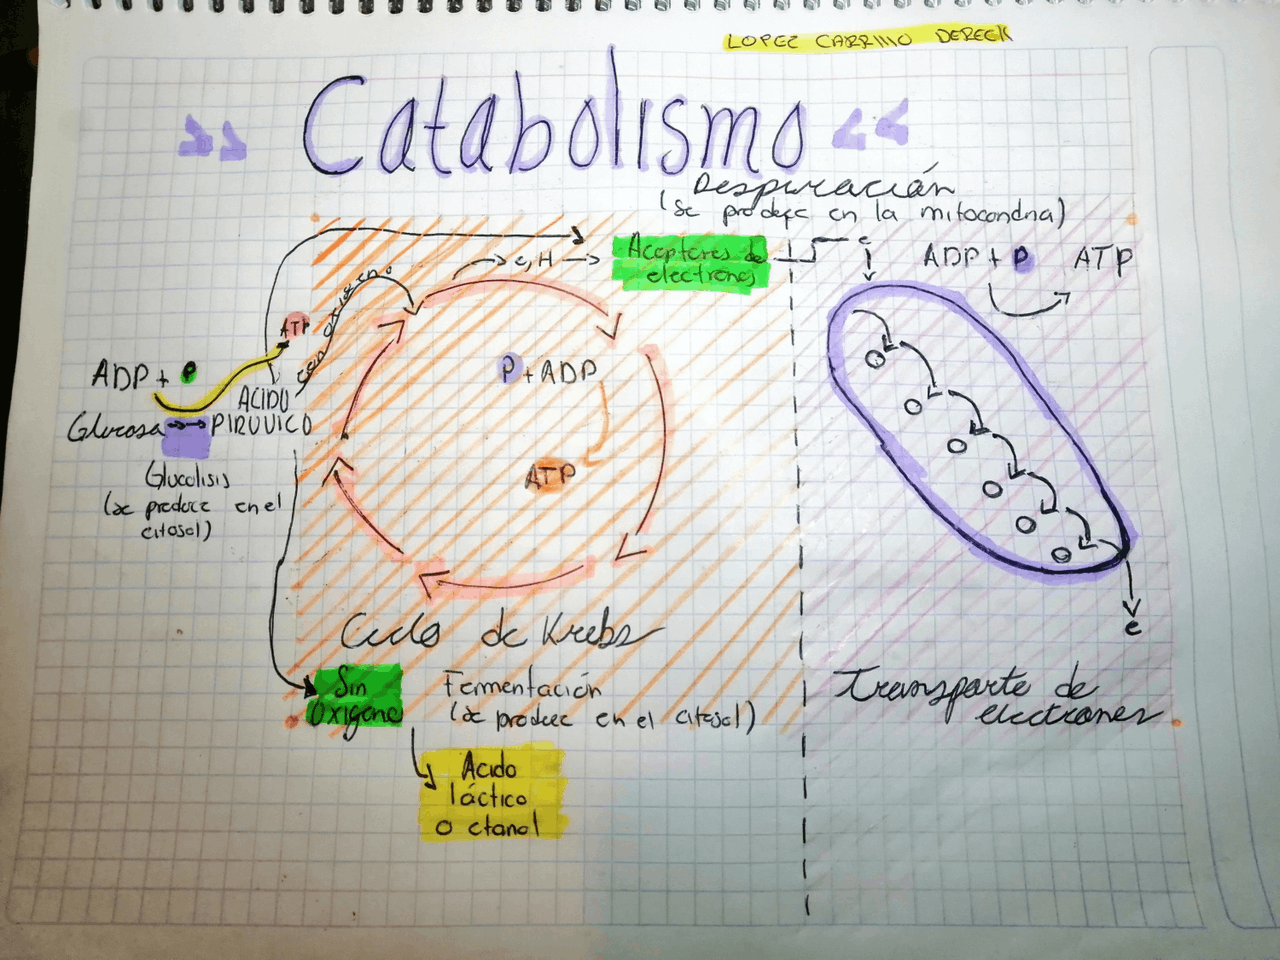 LOPEZ CARRILLO DERECK
Catabolismo
Respiración
(se produce en la mitocondria)
e, H
Aceptores de
electrones
e
ADP + P
ATP
con oxigeno
ATP
ADP + P
ACIDO
Glucosa
PIRUVICO
Glucolisis
(se produce en el
citosol)
P + ADP
ATP
e
Ciclo de Krebs
Sin
Oxigeno
Fermentación
(se produce en el citosol)
Transporte de
electrones
Acido
láctico
o etanol